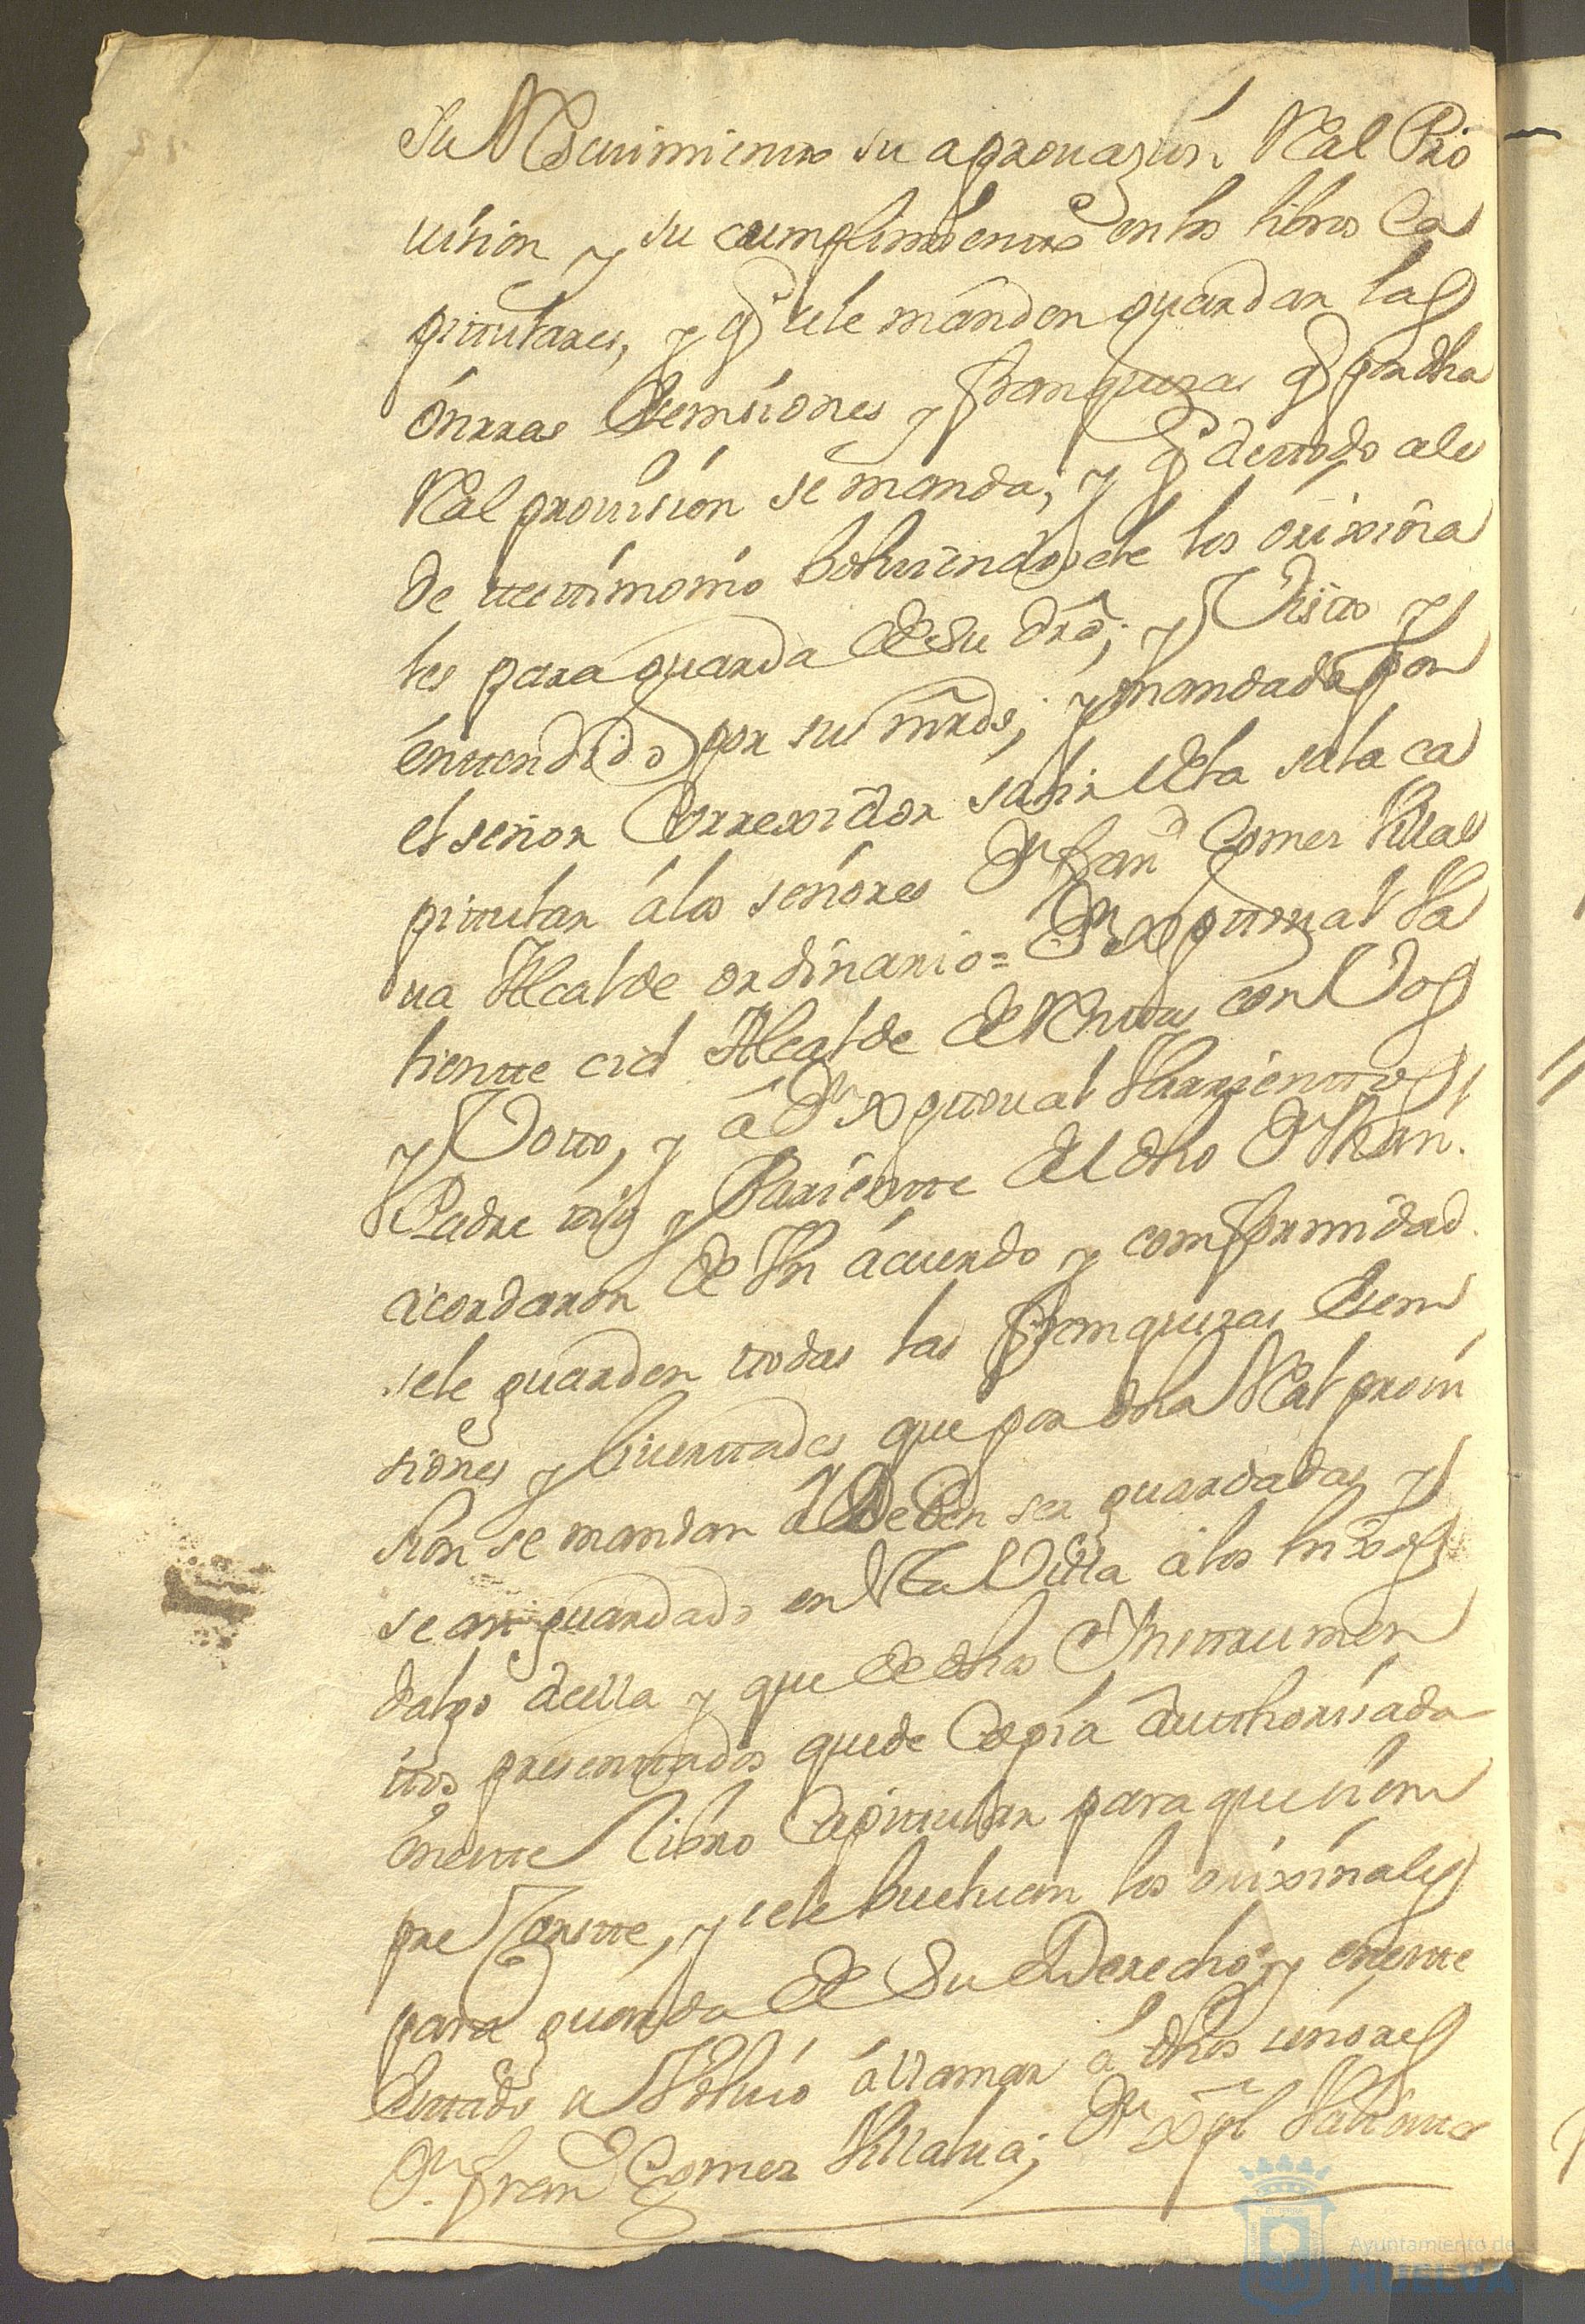 su Resevimiento su aprouazion Real Pro
uision y su cumplimiento en los libros Ca
pitulares, y q se le manden guardar las
onrras esempsiones y franquezas q por dha
Real prouision se manda, y q de todo se le
de testimonio boluiendosele los orixina
les para guarda de su dro; y Visto y
entendido por sus mrds; y mandado por
el señor Correxidor salir de la sala ca
pitular á los señores Dn fran.co Gomez Villal
ua Alcalde ordinario = Dn Xptoual Va
liente cid Alcalde de Rentas con Vos
y Voto, y á Dn Xptoual Varrientos
Padre y Pariente del dho Dn
acordaron de Vn acuerdo y comformidad
se le guarden todas las franquezas esem
siones y liuertades que por dha Real proui
sion se mandan deben ser guardadas y
se an guardado en Esta Villa á los hixos
dalgo de ella y que de dhos Instrumen
tos presentados quede Copia Authorisada
en este Libro Capitular para que siem
pre Conste, y se le bueluan los orixinales
para guarda de Su Derecho; y en este
Estado se Voluió á llamar á dhos señores
Dn fran.co Gomez Villalua; Dn Xpl Valiente
Ayuntamiento de
HUELVA